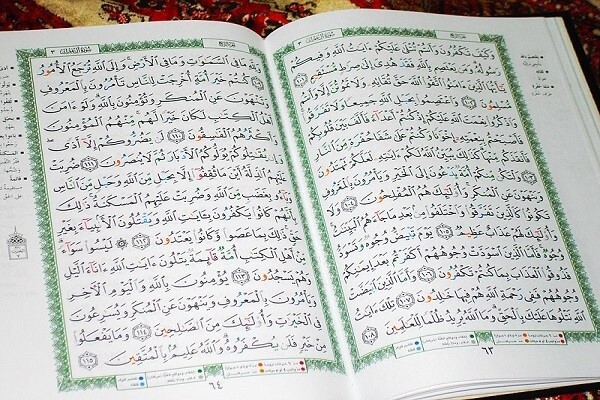 سُورَةُ آلِ عِمْرَان ٣
وَكَيْفَ تَكْفُرُونَ وَأَنتُمْ تُتْلَىٰ عَلَيْكُمْ ءَايَٰتُ ٱللَّهِ وَفِيكُمْ
رَسُولُهُۥ ۗ وَمَن يَعْتَصِم بِٱللَّهِ فَقَدْ هُدِىَ إِلَىٰ صِرَٰطٍ مُّسْتَقِيمٍ ١٠١
يَٰٓأَيُّهَا ٱلَّذِينَ ءَامَنُوا۟ ٱتَّقُوا۟ ٱللَّهَ حَقَّ تُقَاتِهِۦ وَلَا تَمُوتُنَّ إِلَّا وَأَنتُم
مُّسْلِمُونَ ١٠٢ وَٱعْتَصِمُوا۟ بِحَبْلِ ٱللَّهِ جَمِيعًا وَلَا تَفَرَّقُوا۟
وَٱذْكُرُوا۟ نِعْمَتَ ٱللَّهِ عَلَيْكُمْ إِذْ كُنتُمْ أَعْدَآءً فَأَلَّفَ بَيْنَ قُلُوبِكُمْ
فَأَصْبَحْتُم بِنِعْمَتِهِۦٓ إِخْوَٰنًا وَكُنتُمْ عَلَىٰ شَفَا حُفْرَةٍ مِّنَ ٱلنَّارِ
فَأَنقَذَكُم مِّنْهَا ۗ كَذَٰلِكَ يُبَيِّنُ ٱللَّهُ لَكُمْ ءَايَٰتِهِۦ لَعَلَّكُمْ تَهْتَدُونَ
١٠٣ وَلْتَكُن مِّنكُمْ أُمَّةٌ يَدْعُونَ إِلَى ٱلْخَيْرِ وَيَأْمُرُونَ بِٱلْمَعْرُوفِ
وَيَنْهَوْنَ عَنِ ٱلْمُنكَرِ ۚ وَأُو۟لَٰٓئِكَ هُمُ ٱلْمُفْلِحُونَ ١٠٤ وَلَا
تَكُونُوا۟ كَٱلَّذِينَ تَفَرَّقُوا۟ وَٱخْتَلَفُوا۟ مِنۢ بَعْدِ مَا جَآءَهُمُ ٱلْبَيِّنَٰتُ ۚ
وَأُو۟لَٰٓئِكَ لَهُمْ عَذَابٌ عَظِيمٌ ١٠٥ يَوْمَ تَبْيَضُّ وُجُوهٌ وَتَسْوَدُّ
وُجُوهٌ ۚ فَأَمَّا ٱلَّذِينَ ٱسْوَدَّتْ وُجُوهُهُمْ أَكَفَرْتُم بَعْدَ إِيمَٰنِكُمْ
فَذُوقُوا۟ ٱلْعَذَابَ بِمَا كُنتُمْ تَكْفُرُونَ ١٠٦ وَأَمَّا ٱلَّذِينَ ٱبْيَضَّتْ
وُجُوهُهُمْ فَفِى رَحْمَةِ ٱللَّهِ هُمْ فِيهَا خَٰلِدُونَ ١٠٧ تِلْكَ ءَايَٰتُ
ٱللَّهِ نَتْلُوهَا عَلَيْكَ بِٱلْحَقِّ ۗ وَمَا ٱللَّهُ يُرِيدُ ظُلْمًا لِّلْعَٰلَمِينَ ١٠٨
٦٣
سُورَةُ آلِ عِمْرَان ٣
وَلِلَّهِ مَا فِى ٱلسَّمَٰوَٰتِ وَمَا فِى ٱلْأَرْضِ ۚ وَإِلَى ٱللَّهِ تُرْجَعُ ٱلْأُمُورُ
١٠٩ كُنتُمْ خَيْرَ أُمَّةٍ أُخْرِجَتْ لِلنَّاسِ تَأْمُرُونَ بِٱلْمَعْرُوفِ
وَتَنْهَوْنَ عَنِ ٱلْمُنكَرِ وَتُؤْمِنُونَ بِٱللَّهِ ۗ وَلَوْ ءَامَنَ
أَهْلُ ٱلْكِتَٰبِ لَكَانَ خَيْرًا لَّهُم ۚ مِّنْهُمُ ٱلْمُؤْمِنُونَ
وَأَكْثَرُهُمُ ٱلْفَٰسِقُونَ ١١٠ لَن يَضُرُّوكُمْ إِلَّآ أَذًى ۖ
وَإِن يُقَٰتِلُوكُمْ يُوَلُّوكُمُ ٱلْأَدْبَارَ ثُمَّ لَا يُنصَرُونَ ١١١ ضُرِبَتْ
عَلَيْهِمُ ٱلذِّلَّةُ أَيْنَ مَا ثُقِفُوٓا۟ إِلَّا بِحَبْلٍ مِّنَ ٱللَّهِ وَحَبْلٍ مِّنَ ٱلنَّاسِ
وَبَآءُو بِغَضَبٍ مِّنَ ٱللَّهِ وَضُرِبَتْ عَلَيْهِمُ ٱلْمَسْكَنَةُ ۚ ذَٰلِكَ
بِأَنَّهُمْ كَانُوا۟ يَكْفُرُونَ بِـَٔايَٰتِ ٱللَّهِ وَيَقْتُلُونَ ٱلْأَنۢبِيَآءَ بِغَيْرِ
حَقٍّ ۚ ذَٰلِكَ بِمَا عَصَوا۟ وَّكَانُوا۟ يَعْتَدُونَ ١١٢ ۞ لَيْسُوا۟ سَوَآءً ۗ
مِّنْ أَهْلِ ٱلْكِتَٰبِ أُمَّةٌ قَآئِمَةٌ يَتْلُونَ ءَايَٰتِ ٱللَّهِ ءَانَآءَ ٱلَّيْلِ
وَهُمْ يَسْجُدُونَ ١١٣ يُؤْمِنُونَ بِٱللَّهِ وَٱلْيَوْمِ ٱلْءَاخِرِ
وَيَأْمُرُونَ بِٱلْمَعْرُوفِ وَيَنْهَوْنَ عَنِ ٱلْمُنكَرِ وَيُسَٰرِعُونَ
فِى ٱلْخَيْرَٰتِ وَأُو۟لَٰٓئِكَ مِنَ ٱلصَّٰلِحِينَ ١١٤ وَمَا يَفْعَلُوا۟
مِنْ خَيْرٍ فَلَن يُكْفَرُوهُ ۗ وَٱللَّهُ عَلِيمٌۢ بِٱلْمُتَّقِينَ ١١٥
٦٤